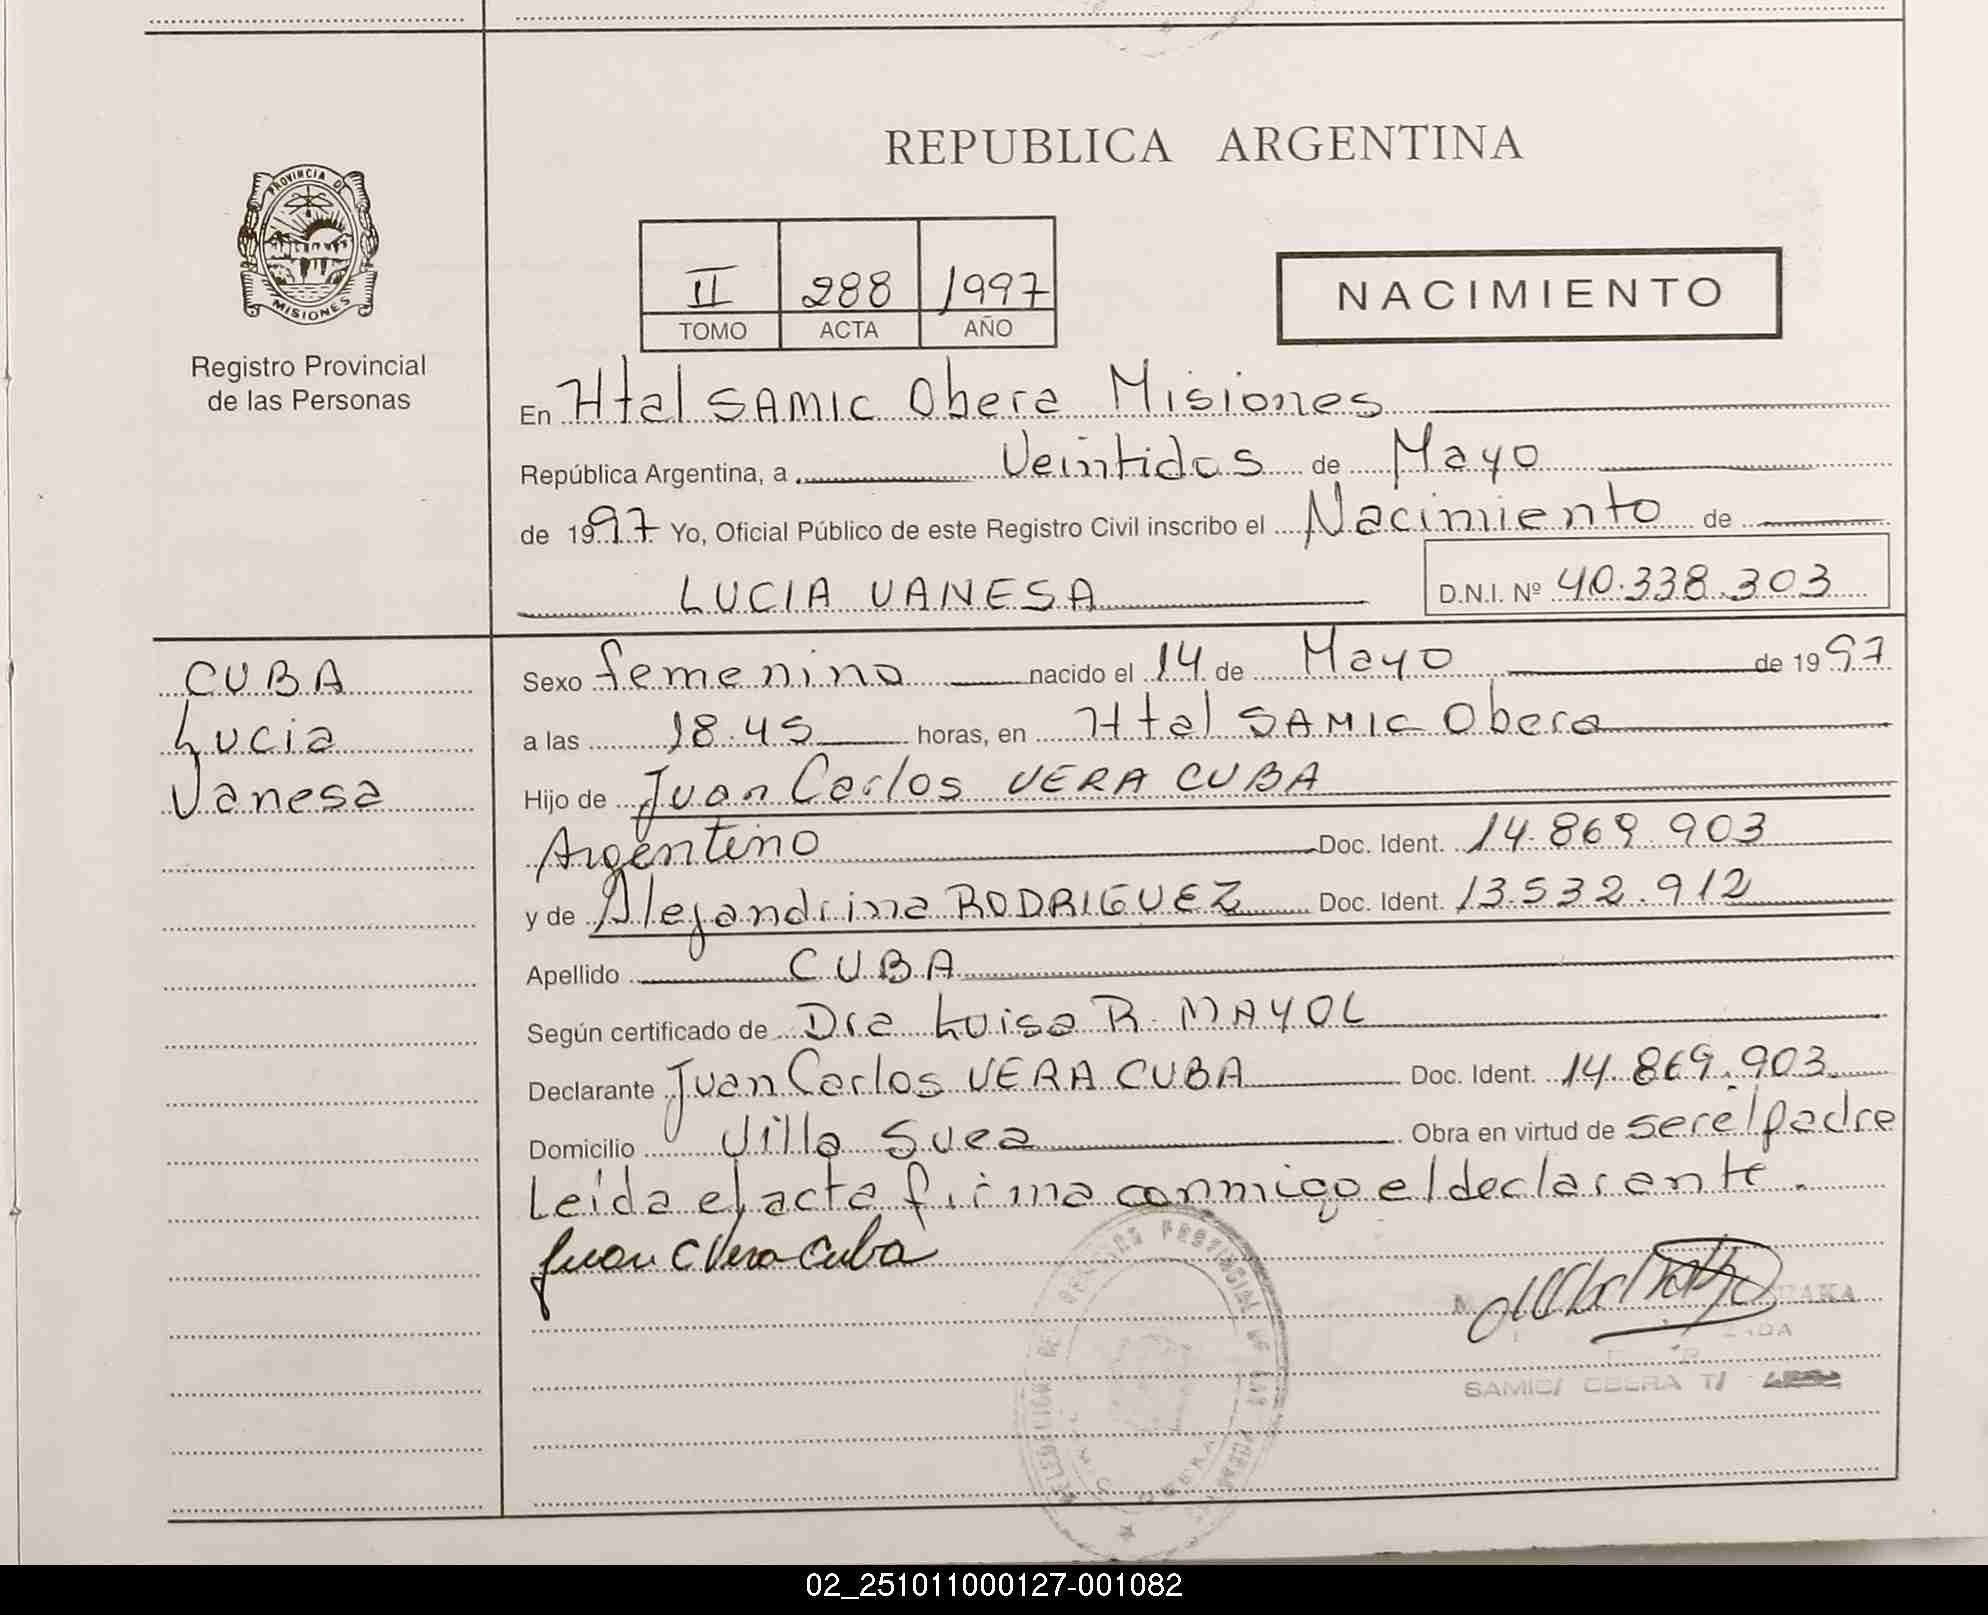 REPUBLICA ARGENTINA
PROVINCIA DE
MISIONES
Registro Provincial
de las Personas
II 288 1997
TOMO ACTA AÑO
NACIMIENTO
En Htal SAMIC Obera Misiones
República Argentina, a Veintidos de Mayo
de 1997 Yo, Oficial Público de este Registro Civil inscribo el Nacimiento de
LUCIA VANESA D.N.I. Nº 40.338.303
CUBA
Lucia
Vanesa
Sexo femenino nacido el 14 de Mayo de 1997
a las 18.45 horas, en Htal SAMIC Obera
Hijo de Juan Carlos VERA CUBA
Argentino Doc. Ident. 14.869.903
y de Alejandrina RODRIGUEZ Doc. Ident. 13.532.912
Apellido CUBA
Según certificado de Dra Luisa R. MAYOL
Declarante Juan Carlos VERA CUBA Doc. Ident. 14.869.903
Domicilio Villa Svea Obra en virtud de ser el padre
Leída el acta firma conmigo el declarante.
Juan C Vera Cuba
PROVINCIAL DE LAS
SAMIC/ OBERA
02_251011000127-001082